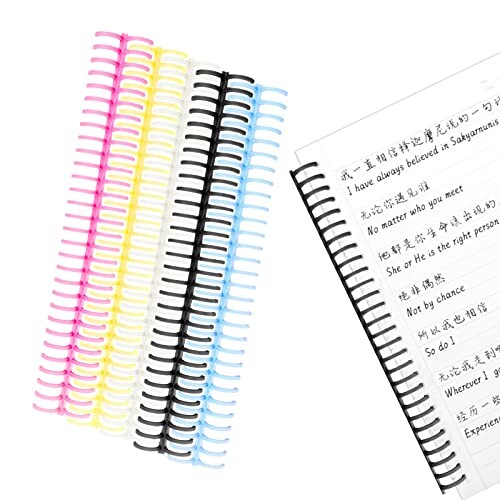 我一直相信释迦摩尼说的一句
I have always believed in Sakyarnunis
无论你遇见谁
No matter who you meet
他都是你生命该出现的
She or He is the right person
绝非偶然
Not by chance
所以我也相信
So do I
无论我走到哪
Wherever I go
经历一些